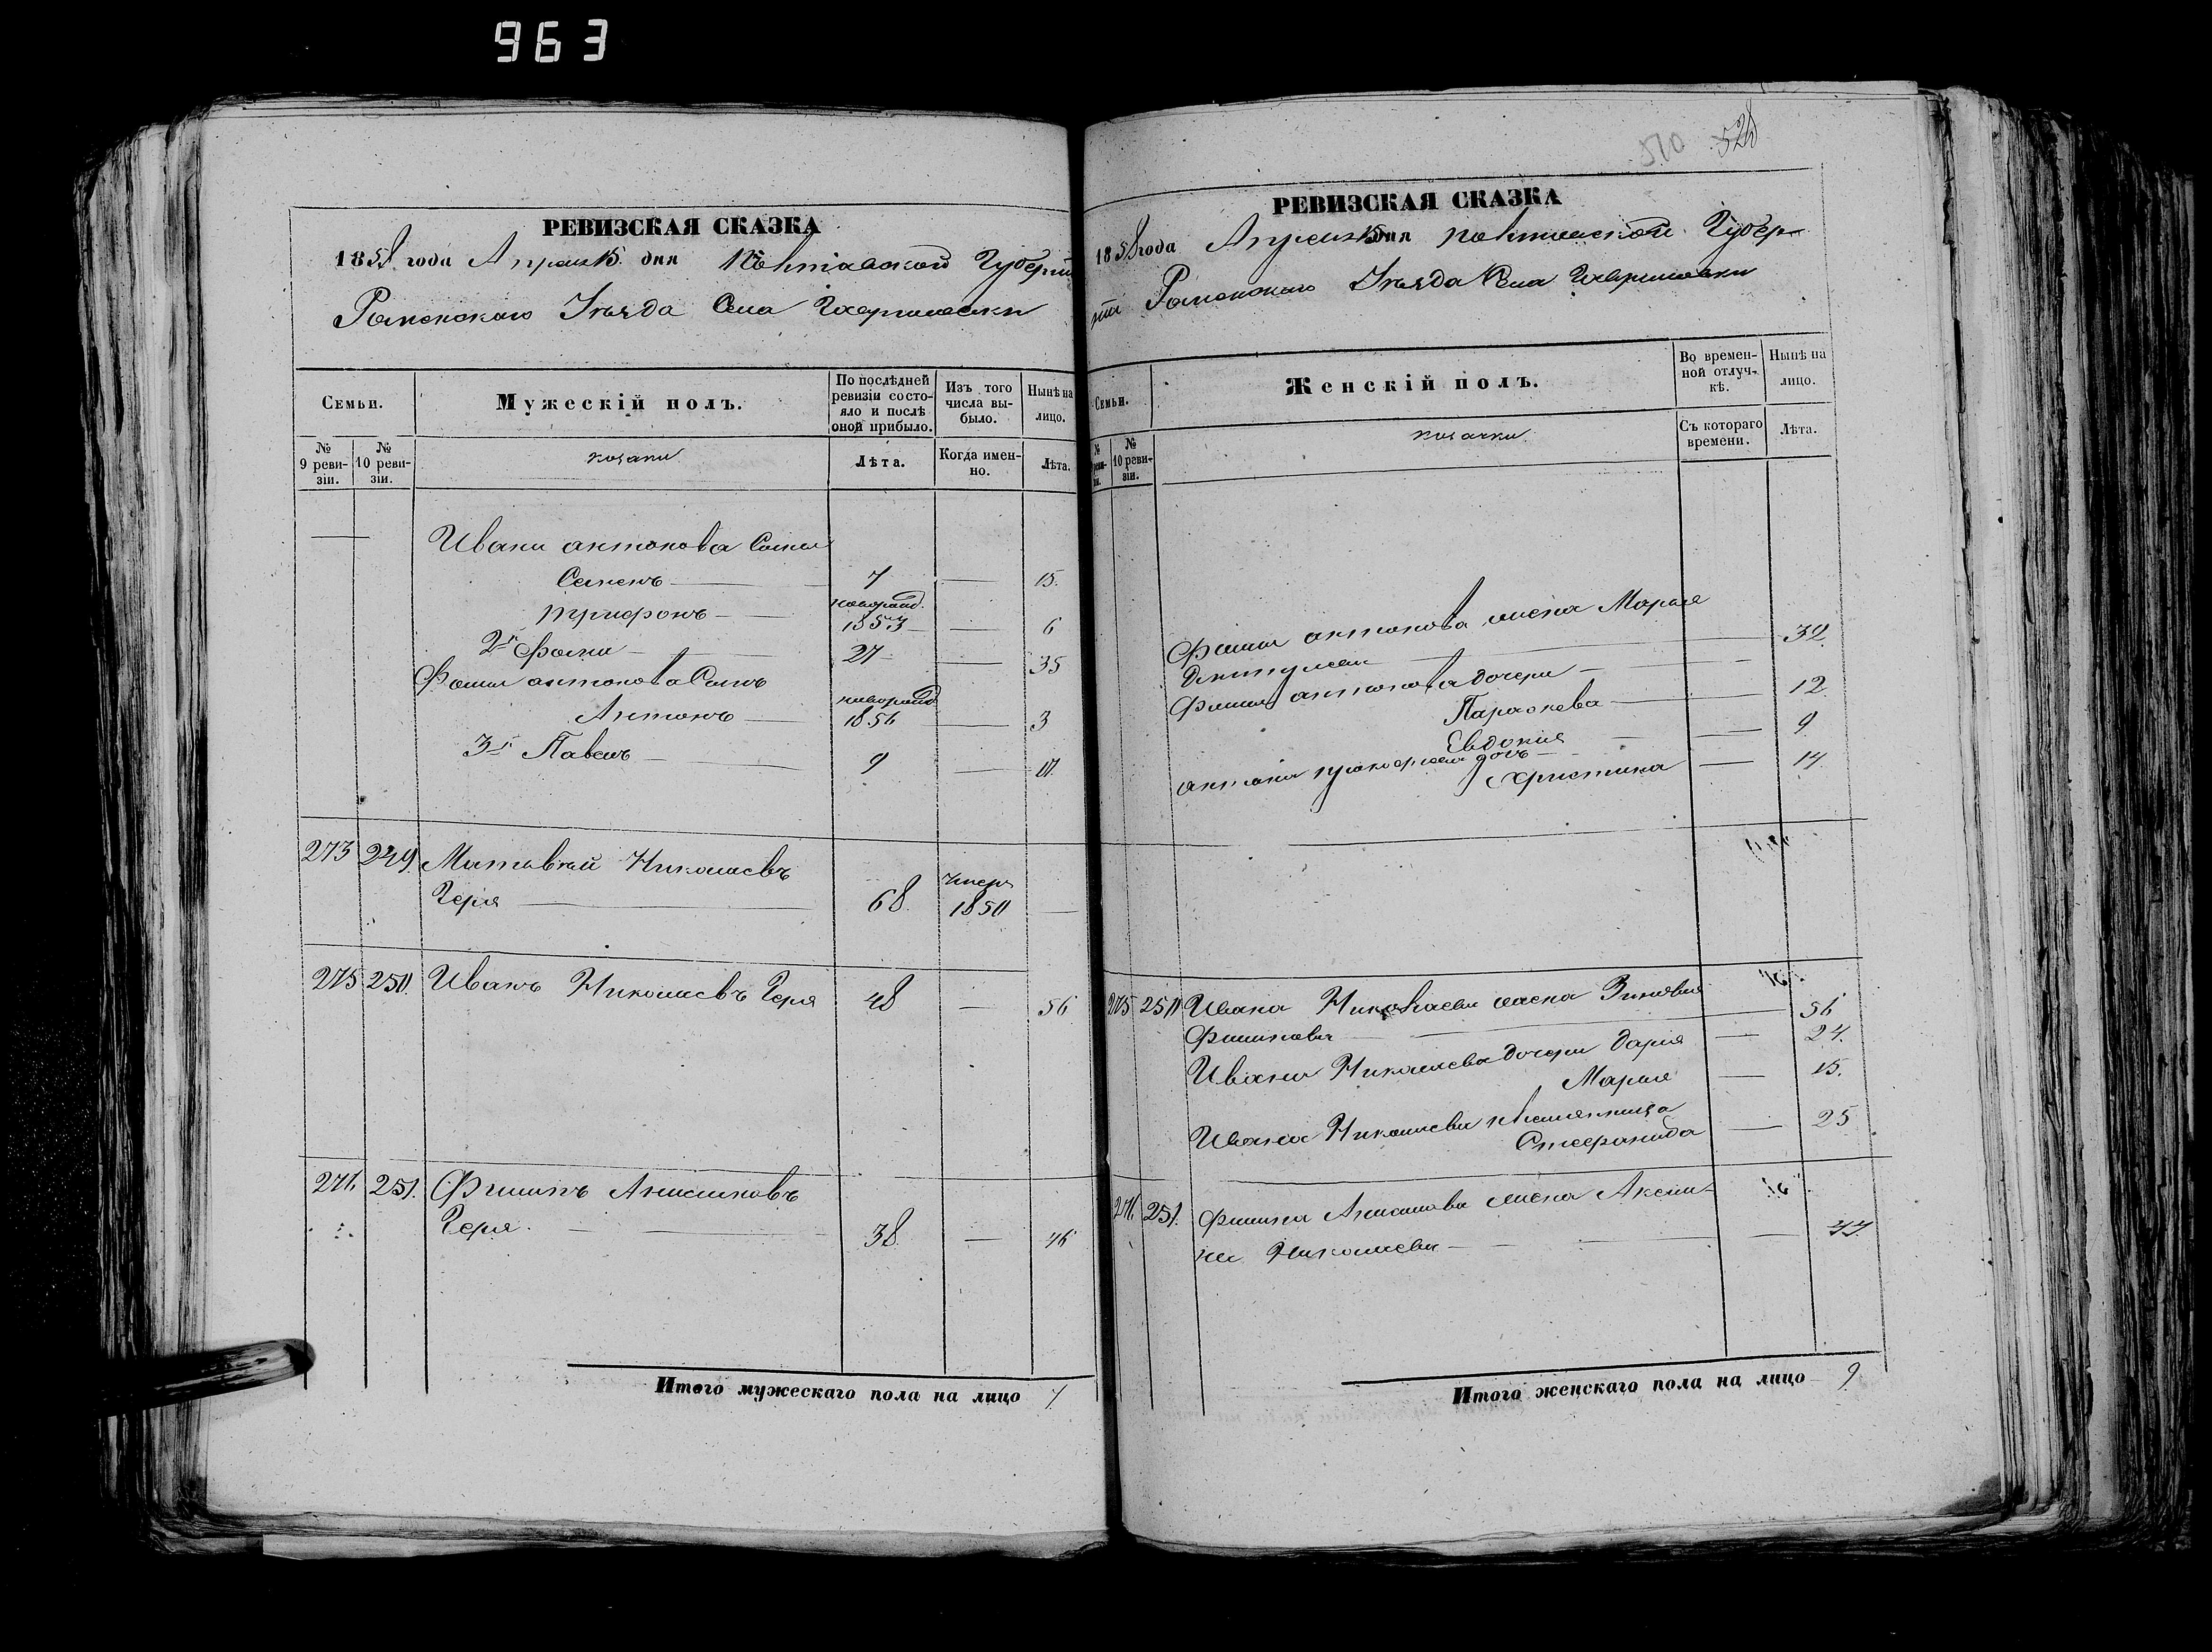 963
РЕВИЗСКАЯ СКАЗКА
1858 года Апреля 15 дня Полтавской Губерніи
Роменскаго Уезда Села
Семьи.
Мужескій полъ.
По послѣдней ревизіи состояло и послѣ оной прибыло.
Изъ того числа выбыло.
Нынѣ на лицо.
№ 9 ревизіи.
№ 10 ревизіи.
козаки
Лѣта.
Когда именно.
Лѣта.
Ивана антонова Сыны
Семенъ 7 15.
новорожд.
трифонъ 1853 6
2й Фома 27 35
Фомы антонова Сынъ
новорожд.
Антонъ 1856 3
3й Павелъ 9 17.
273 249. Матвѣй Николаевъ
умеръ
Геря 68 1850
275 250. Иванъ Николаевъ Геря 48 56
276. 251. Филипъ Анисимовъ
Геря. 38 46
Итого мужескаго пола на лицо 7.
510 520
РЕВИЗСКАЯ СКАЗКА
1858 года Апреля 15 дня Полтавской Губер-
ніи Роменскаго Уезда Села
Семьи.
Женскій полъ.
Во временной отлучкѣ.
Нынѣ на лицо.
№ 9 ревизіи.
№ 10 ревизіи.
козачки
Съ котораго времени.
Лѣта.
Фомы антонова жена Марья
32
Фомы антонова дочери
Параскева 12
Евдокия 9
антона прокофьева дочь
Христина 14
275 250 Ивана Николаева жена Зиновия
Филипова 56
Ивана Николаева дочери Дария 24.
Мария 15.
Ивана Николаева племянница
Стефанида 25
276. 251. Филипа Анисимова жена Аксени-
на Николаева 44.
Итого женскаго пола на лицо 9